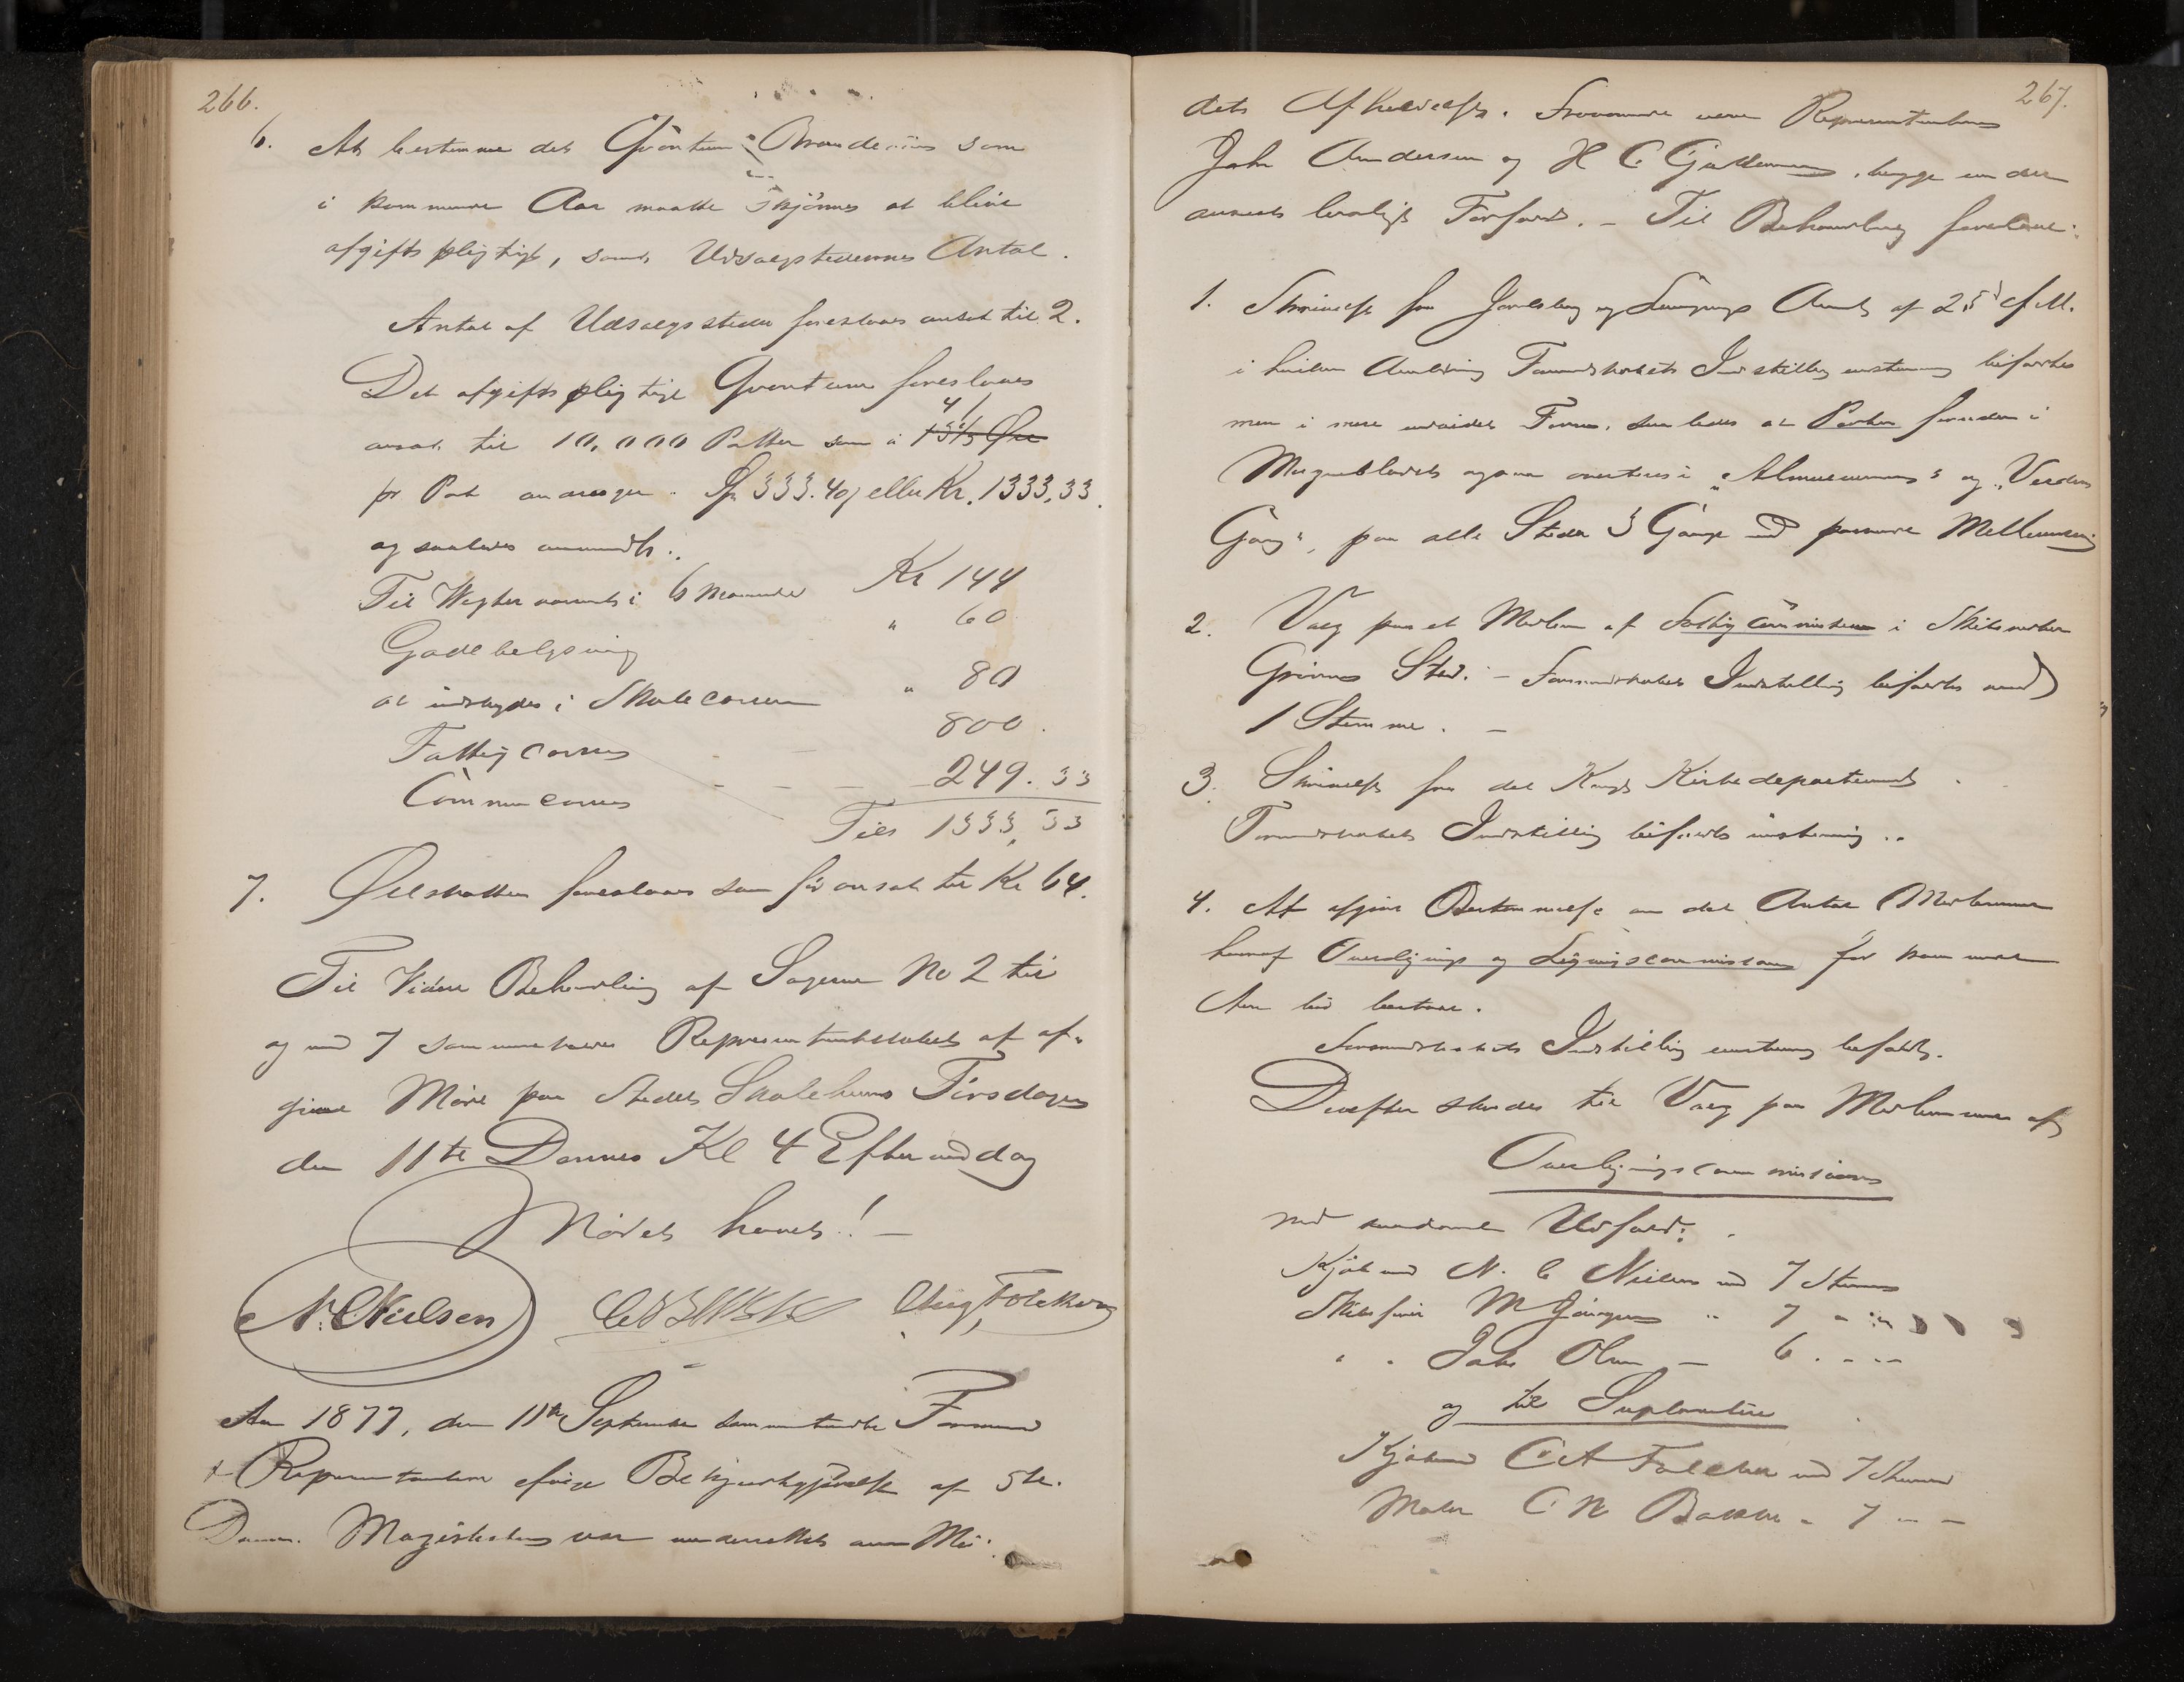 266.
6. At bestemme det Qvantum Brændeviin som
i kommende Aar maatte skjönnes at blive
afgiftspligtigt, samt Udsalgstedernes Antal.
Antal af Udsalgssteder foreslaaes ansat til 2.
Det afgiftspligtige Qvantum foreslaaes
ansat til 10,000 Potter som á 13 1/3 Øre
pr Pot andrager Sp 333.40 eller Kr. 1333,33.
og saaledes anvendt:
Til Vægtervæsenet i 6 Maaneder Kr 144
Gadebelysning " 60
at indskydes i Skolecassen " 80
Fattigcassen 800.
Communecassen 249.33
Tils 1333,33
7. Ølskatten foreslaaes som för ansat til Kr 64.
Til Videre Behandling af Sagerne No 2 til
og med 7 sammentræder Repræsentantskabet at af-
give Möde paa Stedets Skolehuus Tirsdagen
den 11te Dennes Kl 4 Eftermiddag
Mödet hævet! –
N. C. Nielsen Chr. Falckum
Aar 1877, den 11te September sammentraadte Formænd
+ Repræsentantere ifölge Bekjendtgjörelse af 5te
Dennes. Magistraten var underrettet om Mö-
267.
dets Afholdelse. Fraværende vare Repræsentanterne
John Andersen og H C Gulliksen, begge under
anmeldt lovligt Forfald. – Til Behandling forelaae:
1. Skrivelse fra Jarlsberg og Laurvigs Amt af 25 f. M.
i hvilken Anledning Formandskabets Indstilling eenstemmig bifaldtes
men i mere udvidet Form, saaledes at Posten foruden i
Morgenbladet ogsaa averteres i "Almuevennen" og "Verdens
Gang", paa alle Steder 3 Gange med passende Mellemrum
2. Valg paa et Medlem af Fattigcommissionen i Skibsreder
Grönns Sted. – Formandskabets Indstilling bifaldtes mod
1 Stemme. –
3. Skrivelse fra det Kongl Kirkedepartement.
Formandskabets Indstilling bifaldt eenstemmig.
4. At afgive Bestemmelse om det Antal Medlemmer
hvoraf Overlignings og Ligningscommissionen for kommende
Aar bör bestaae.
Formandskabets Indstilling eenstemmig bifaldt.
Derefter skredes til Valg paa Medlemmer af
Overligningscommissionen
med saadant Udfald:
Kjöbmd N. C Nielsen med 7 Stemmer
Skibsförer M Jörgensen " 7 " "
" " Jakob Olsen – 6 " "
og til Suppleanter
Kjöbmd C A Falckum med 7 Stemmer
Maler C N Bakke " 7 – –